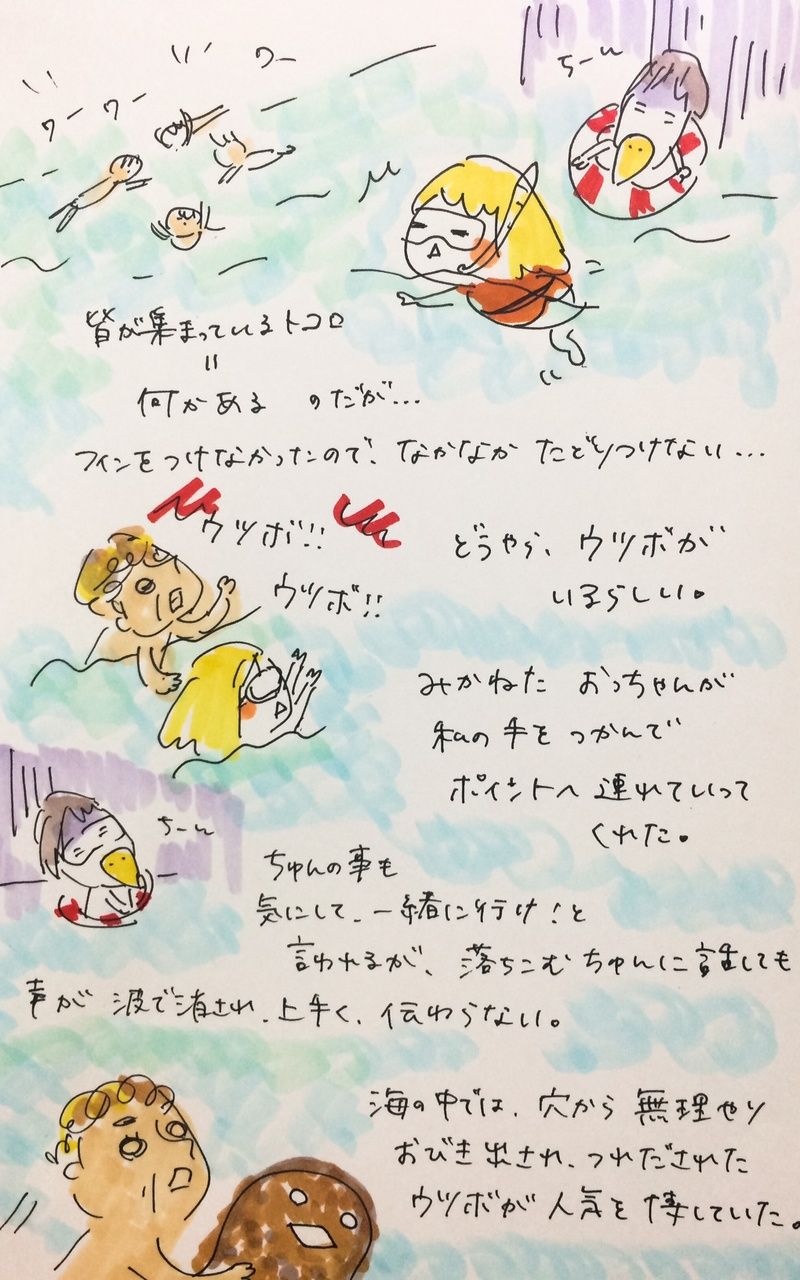 ワー
ワー
ワー
ちーん
皆が集まっているトコロ
＝
何かある のだが…
フィンをつけなかったので、なかなか たどりつけない…
ウツボ!!
ウツボ!!
どうやら、ウツボが
いるらしい。
みかねた おっちゃんが
私の手をつかんで
ポイントへ 連れていって
くれた。
ちーん
ちゅんの事も
気にして、一緒に行け！と
言われるが、落ちこむちゅんに話しても
声が 波で消され、上手く、伝わらない。
海の中では、穴から 無理やり
おびき出され、つれだされた
ウツボが 人気を博していた。